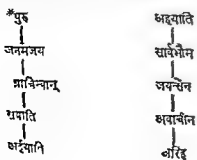 *पुरु
जनमेजय
प्राचिन्वान्
शयाति
अहंयाति
अहयाति
सार्वभौम
जयत्सेन
अवाचीन
अरिह